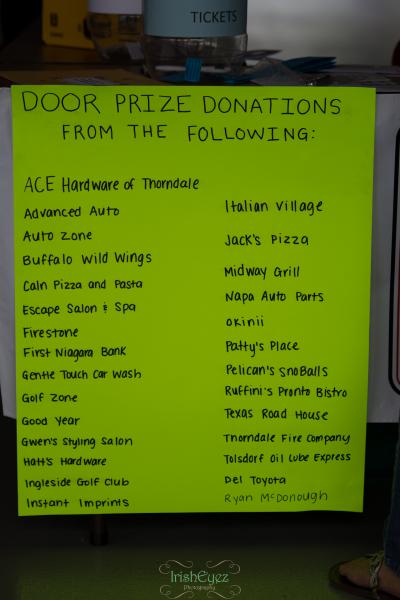 TICKETS
DOOR PRIZE DONATIONS
FROM THE FOLLOWING:
ACE Hardware of Thorndale
Advanced Auto
Auto Zone
Buffalo Wild Wings
Caln Pizza and Pasta
Escape Salon & Spa
Firestone
First Niagara Bank
Gentle Touch Car Wash
Golf Zone
Good Year
Gwen's Styling Salon
Hatt's Hardware
Ingleside Golf Club
Instant Imprints
Italian Village
Jack's Pizza
Midway Grill
Napa Auto Parts
Okinii
Patty's Place
Pelican's SnoBalls
Ruffini's Pronto Bistro
Texas Road House
Thorndale Fire Company
Tolsdorf Oil Lube Express
Del Toyota
Ryan McDonough
IrishEyez
Photography